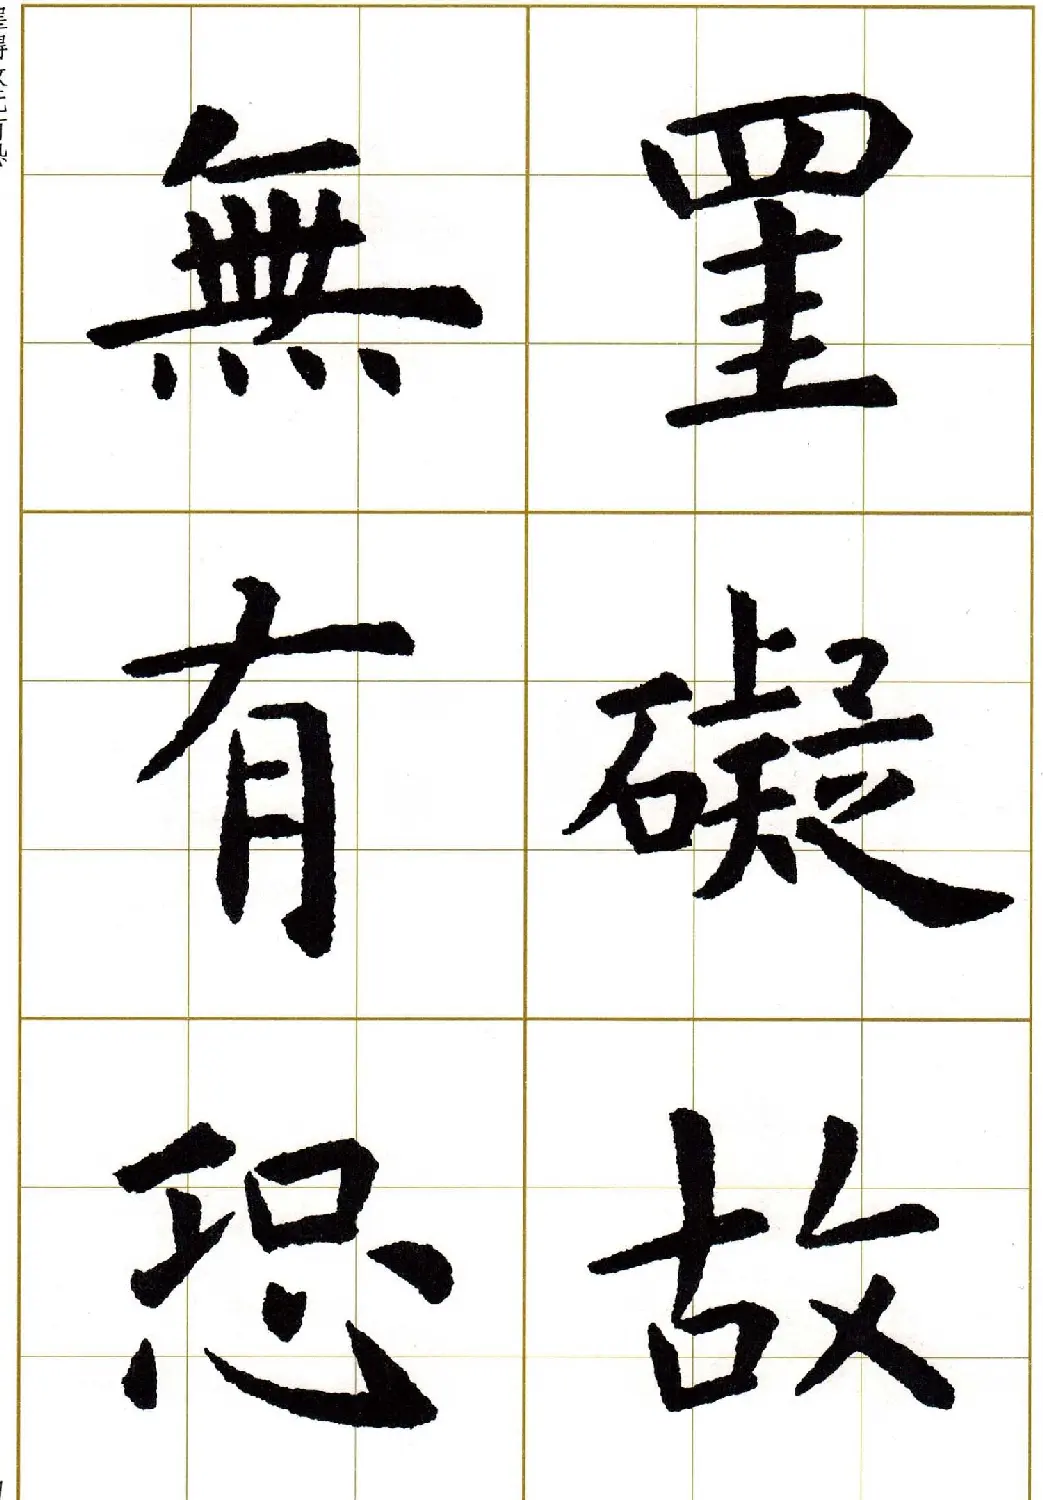 罣礙故
無有恐